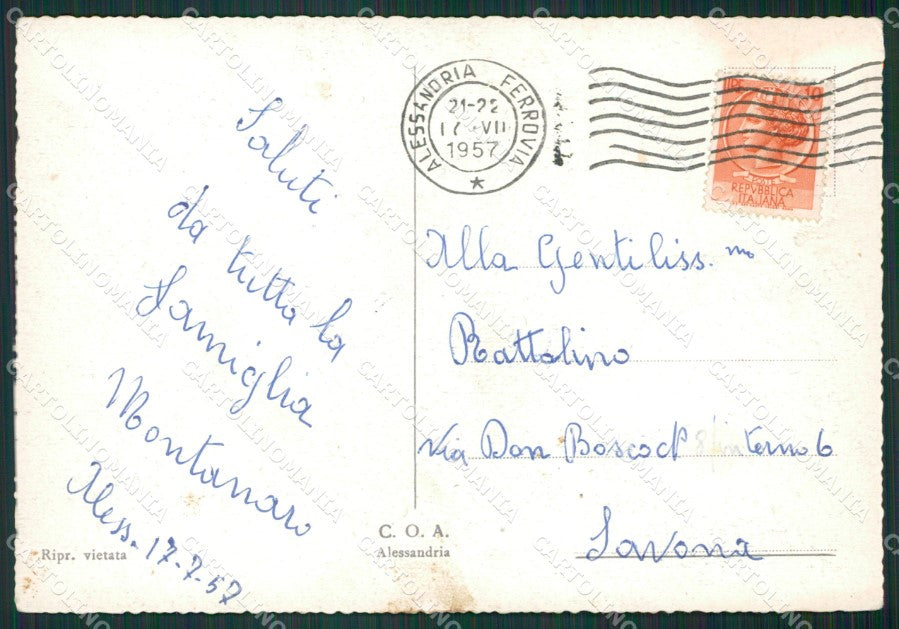 Saluti
da tutta la
Famiglia
Montanaro
Aless. 17-7-57
Ripr. vietata
C. O. A.
Alessandria
ALESSANDRIA FERROVIA
21-22
17 VII
1957
LIRE 10
POSTE
REPVBBLICA
ITALIANA
Alla Gentiliss.ma
Rattalino
Via Don Bosco N 8 interno 6
Savona
CARTOLINOMANIA